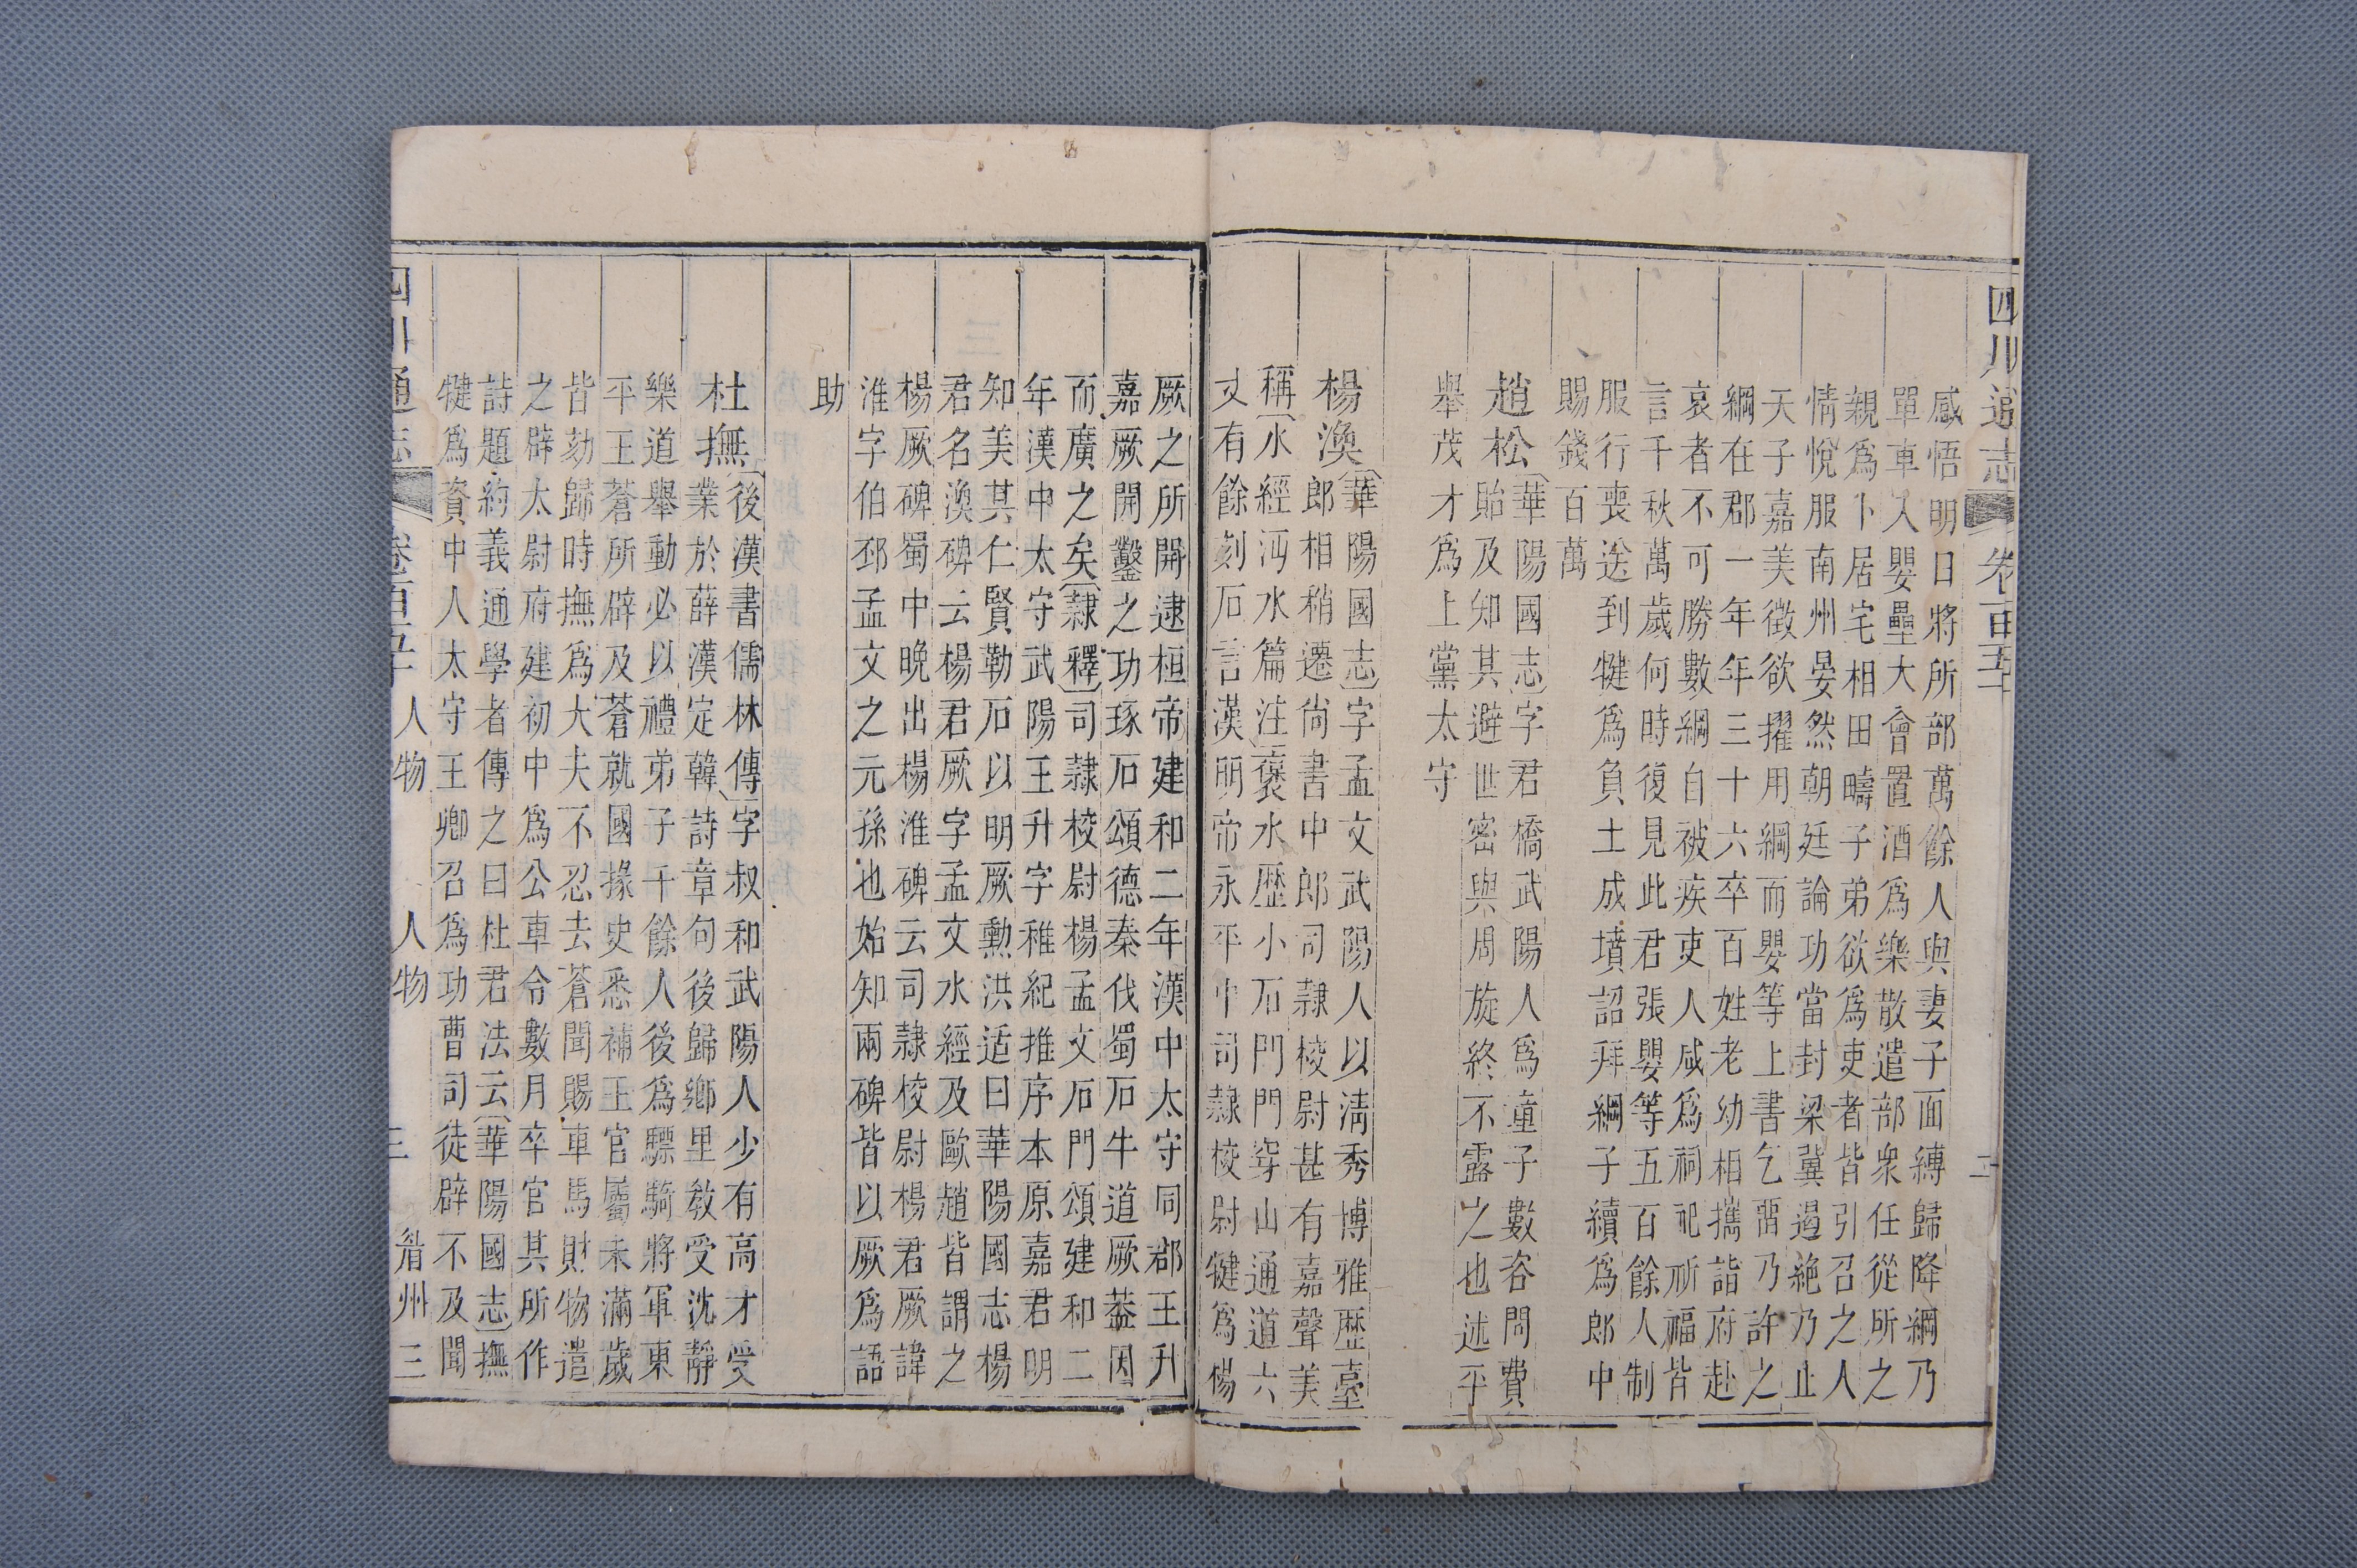 四川通志 卷一百五十 二
感悟明日將所部萬餘人與妻子面縛歸降綱乃
單車入嬰壘大會置酒爲樂散遣部衆任從所之
親爲卜居宅相田疇子弟欲爲吏者皆引召之人
情悅服南州晏然朝廷論功當封梁冀遏絶乃止
天子嘉美徵欲擢用綱而嬰等上書乞留乃許之
綱在郡一年年三十六卒百姓老幼相攜詣府赴
哀者不可勝數綱自被疾吏人咸爲祠祀祈福皆
言千秋萬歲何時復見此君張嬰等五百餘人制
服行喪送到犍爲負土成墳詔拜綱子續爲郎中
賜錢百萬
趙松〔華陽國志〕字君橋武陽人爲童子數咨問費
貽及知其避世密與周旋終不露之也述平
舉茂才爲上黨太守
楊渙〔華陽國志〕字孟文武陽人以淸秀博雅歷臺
郎相稍遷尙書中郎司隷校尉甚有嘉聲美
稱〔水經沔水篇注〕褒水歷小石門門穿山通道六
丈有餘刻石言漢明帝永平中司隷校尉犍爲楊
厥之所開逮桓帝建和二年漢中太守同郡王升
嘉厥開鑿之功琢石頌德秦伐蜀石牛道厥葢因
而廣之矣〔隷釋〕司隷校尉楊孟文石門頌建和二
年漢中太守武陽王升字稚紀推序本原嘉君明
知美其仁賢勒石以明厥勳洪适曰華陽國志楊
君名渙碑云楊君厥字孟文水經及歐趙皆謂之
楊厥碑蜀中晚出楊淮碑云司隷校尉楊君厥諱
淮字伯邳孟文之元孫也始知兩碑皆以厥爲語
助
杜撫〔後漢書儒林傳〕字叔和武陽人少有高才受
業於薛漢定韓詩章句後歸鄉里敎受沈靜
樂道舉動必以禮弟子千餘人後爲驃騎將軍東
平王蒼所辟及蒼就國掾史悉補王官屬未滿歲
皆劾歸時撫爲大夫不忍去蒼聞賜車馬財物遣
之辟太尉府建初中爲公車令數月卒官其所作
詩題約義通學者傳之曰杜君法云〔華陽國志〕撫
犍爲資中人太守王卿召爲功曹司徒辟不及聞
四川通志 卷一百五十 人物 人物 三 眉州三